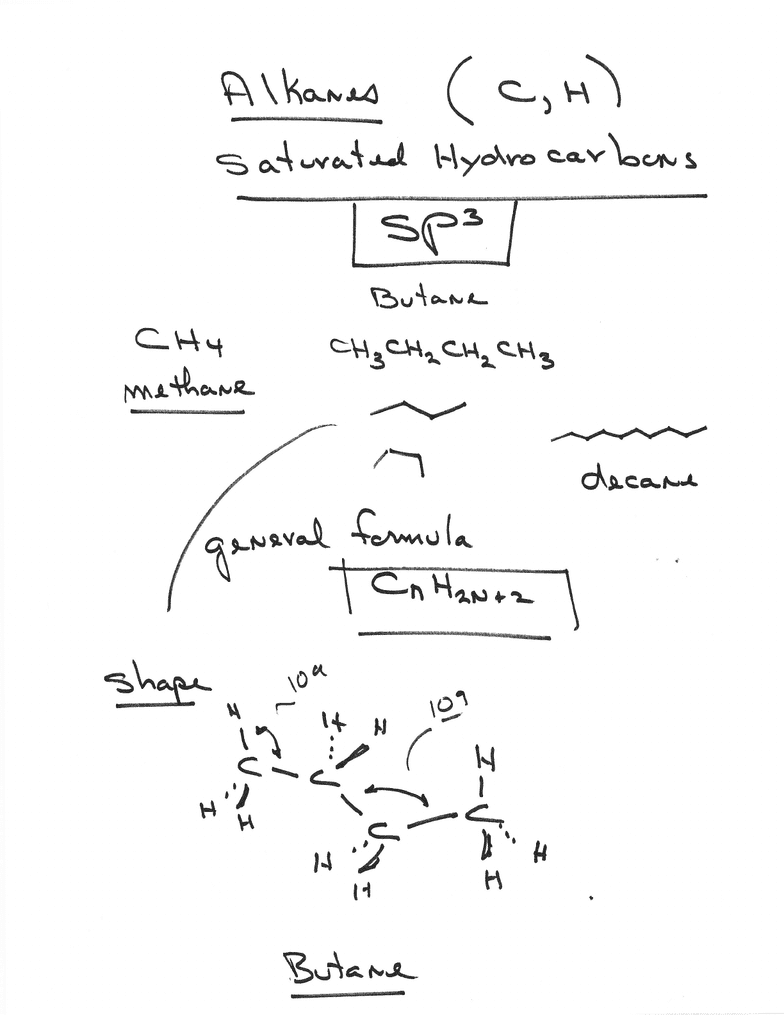 Alkanes (C, H)
Saturated Hydrocarbons
SP³
Butane
CH4
CH₃CH₂CH₂CH₃
methane
decane
general formula
CnH2N+2
Shape
109
109
H H H
H
C C
C C
H H
H H
H H
Butane